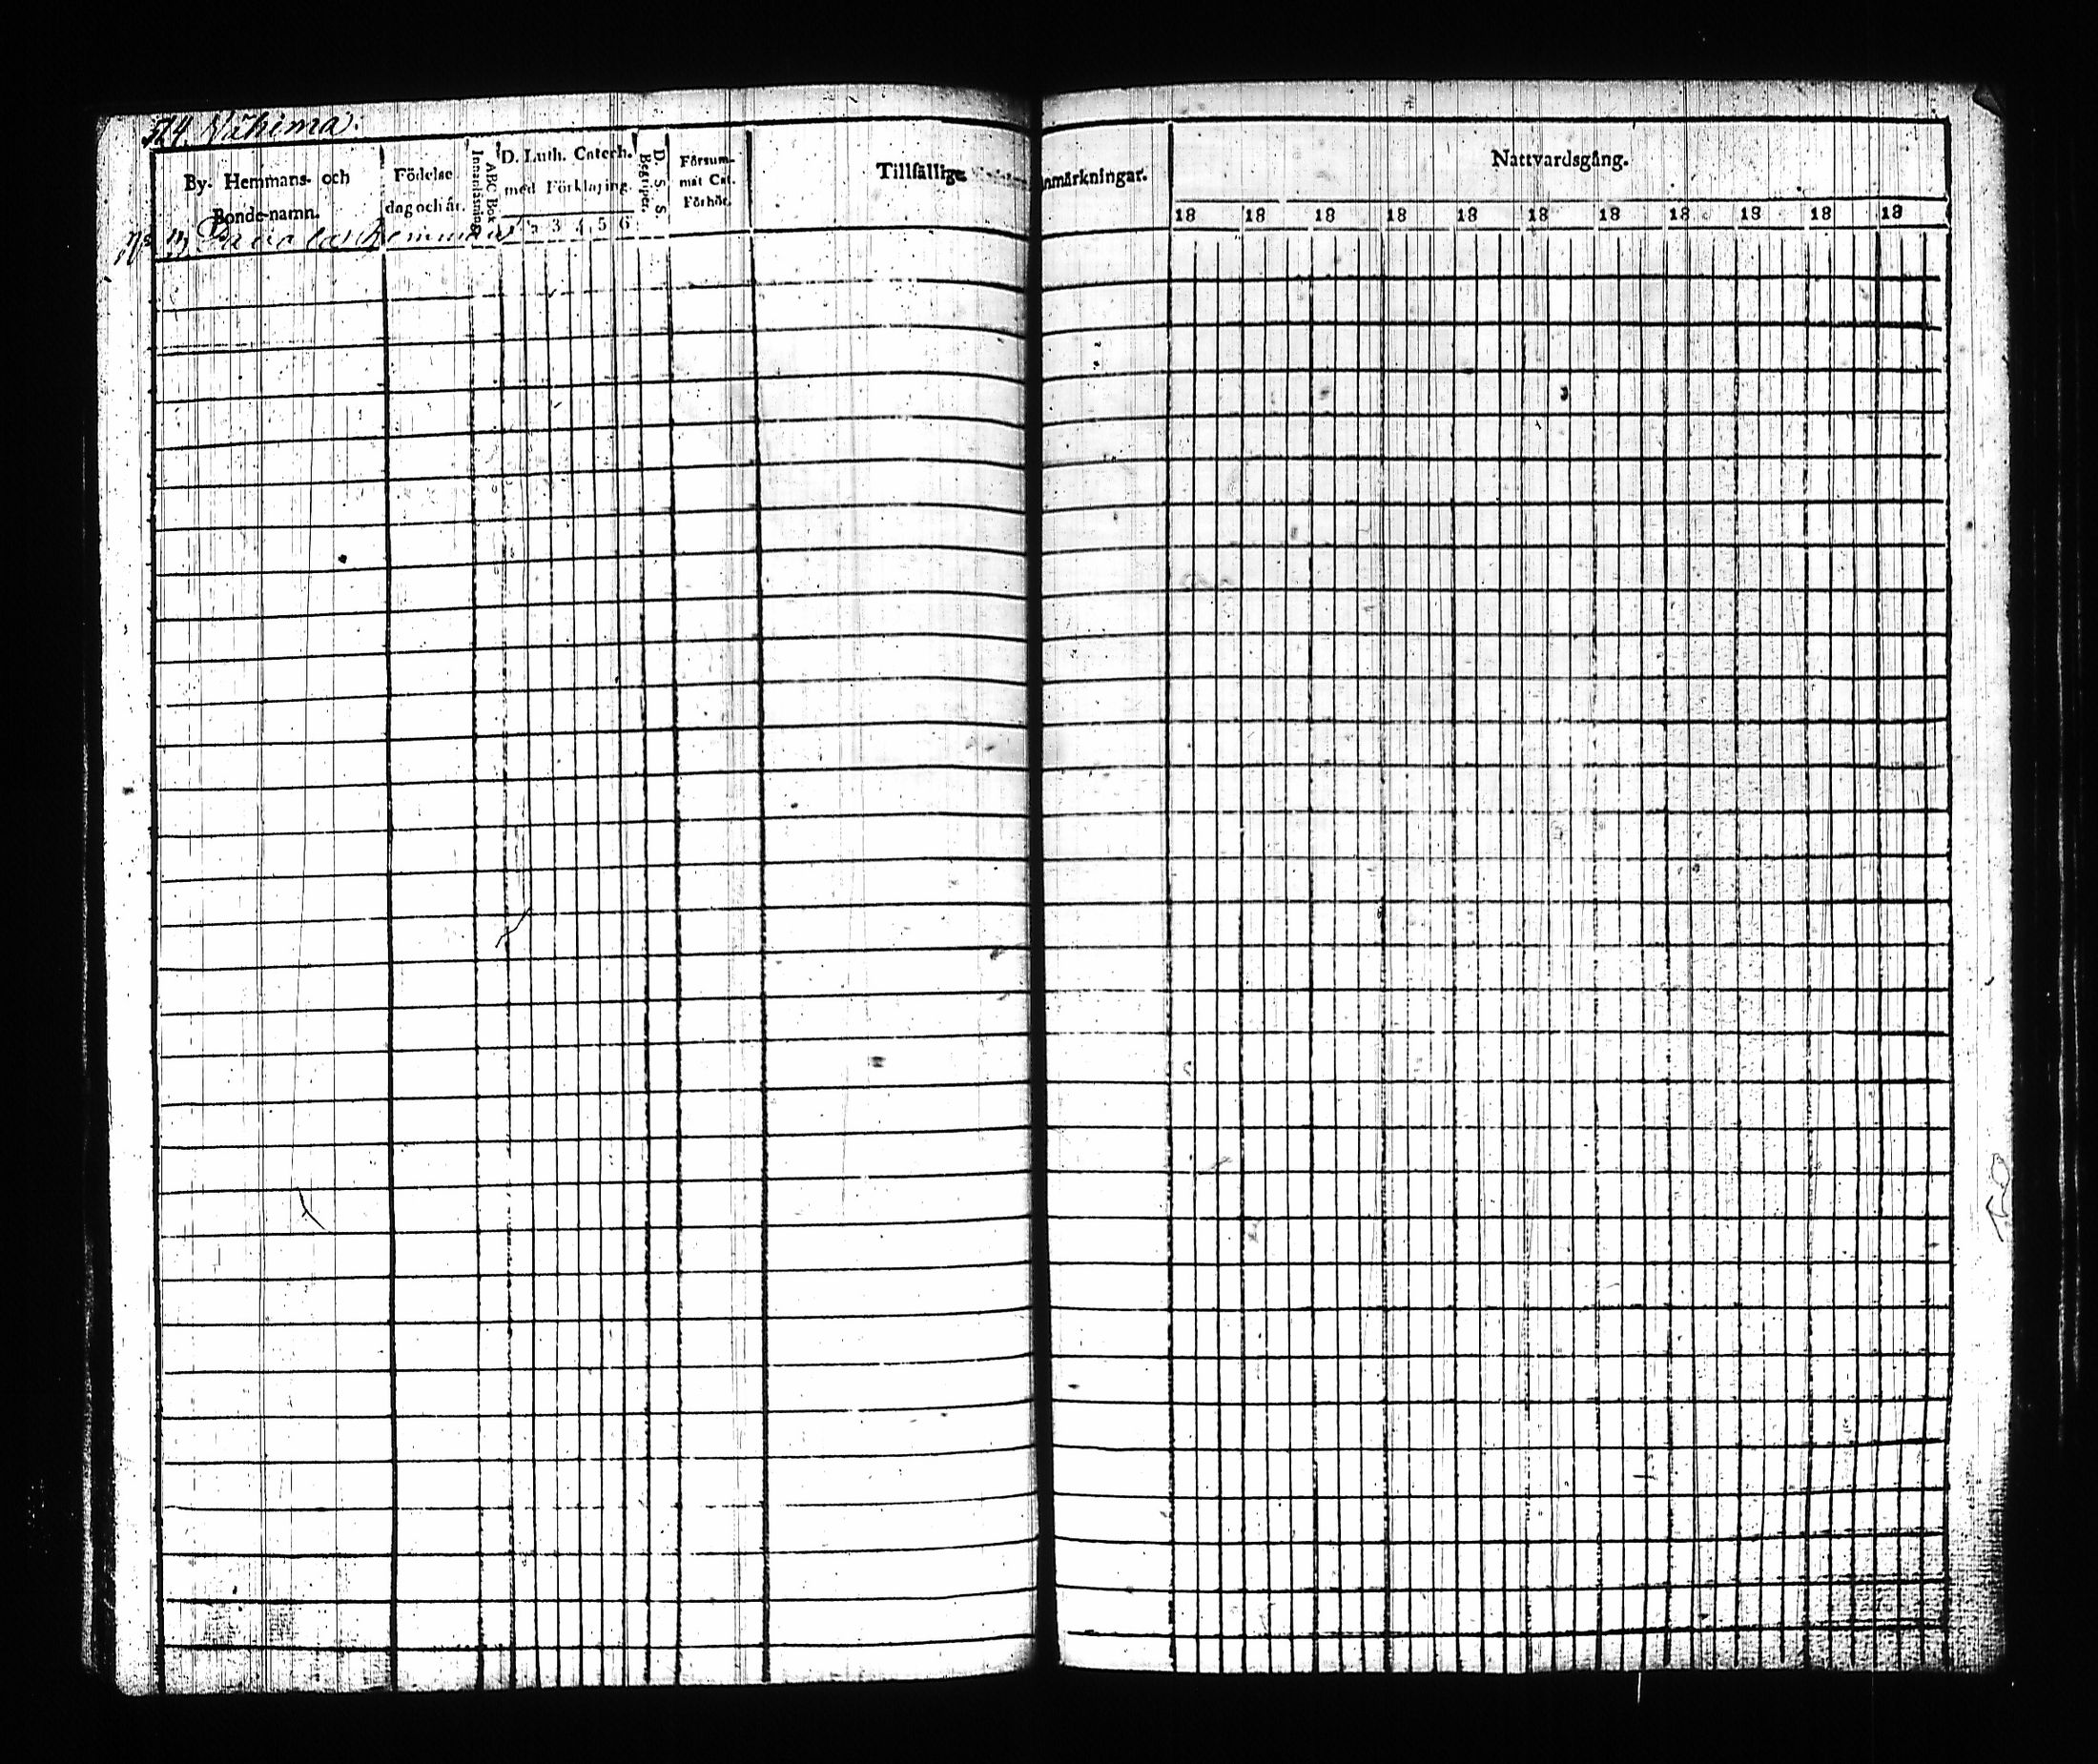 524. Vähimä.
By- Hemmans- och
Bonde-namn.
Födelse
dag och år.
Innanläsning.
ABC Bok
D. Luth. Catech.
med Förklaring.
2 3 4 5 6
D. S. S.
Begriper.
Försum-
mat Cat.
Förhör.
Tillfällige Anmärkningar.
Nattvardsgång.
18 18 18 18 18 18 18 18 18 18 18